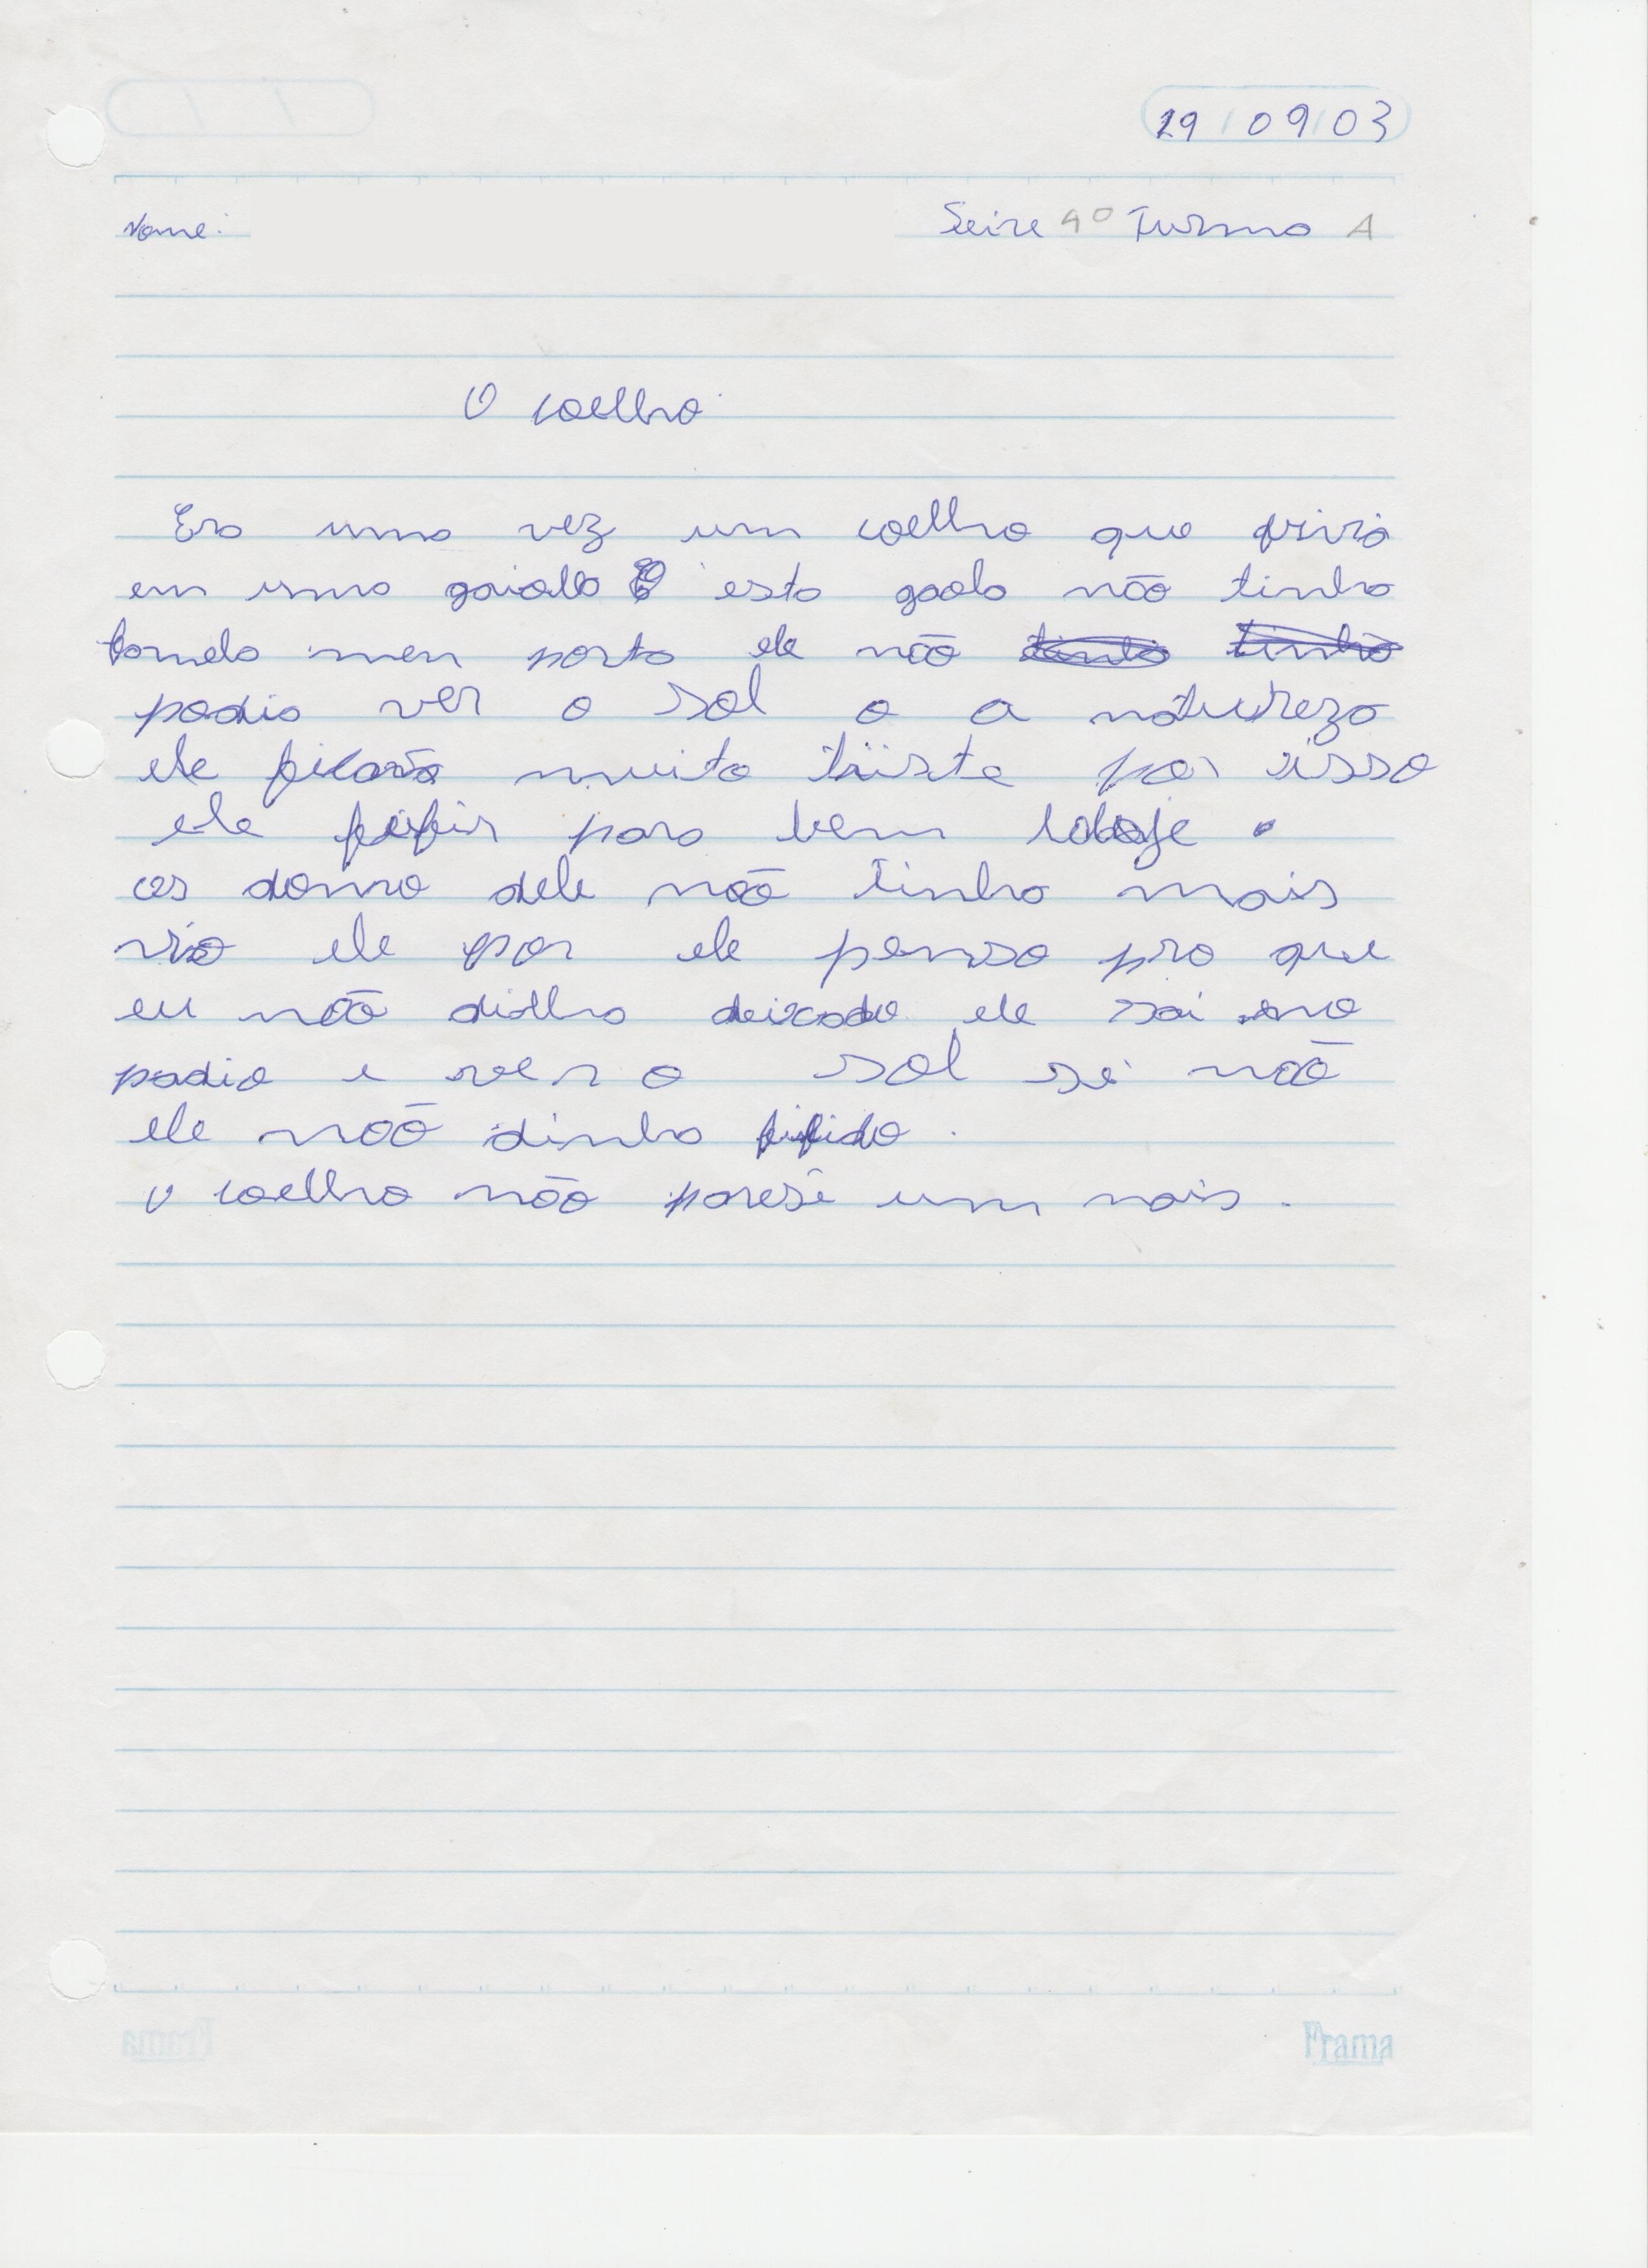 29/09/03
Nome: Seire 4º Turma A
O coelho
Era uma vez um coelho que vivia
em uma gaiolla esta gaola não tinha
men porta ele não tinta tinha
podia ver o sol o a natureza
ele ficava muito triiste por isso
ele para bem
os donno dele não tinha mais
vio ele por ele penso pro que
eu não dilho deixado ele sai no
padio e ver o sol se não
ele não dinho fifido.
o coelho não paresê um mais.
Frama